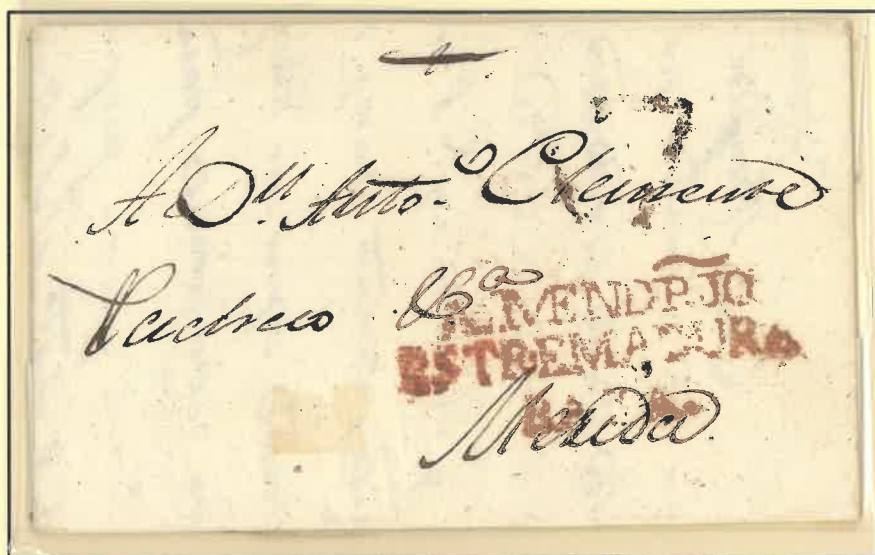 7
A Dn. Anto.o Clemente
Pacheco &ca
ALMENDRJO
ESTREMADURA
BAJA
Merida.